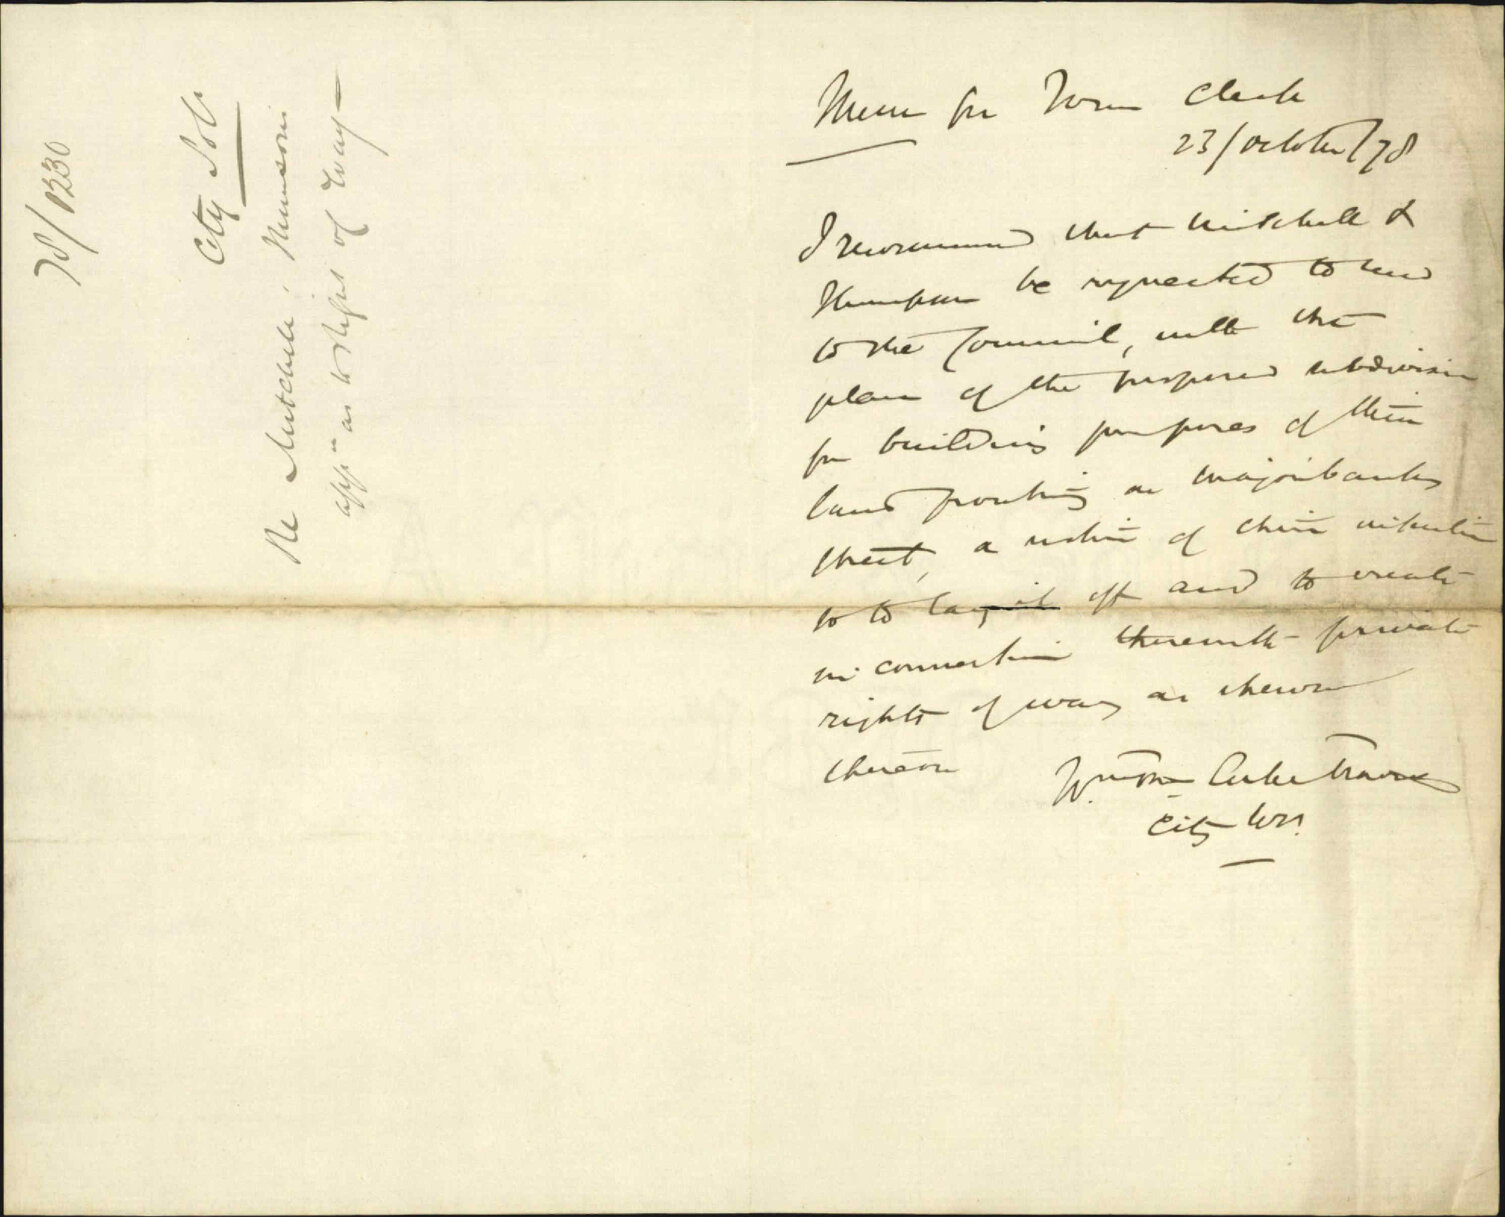 78/1330
City Solr
Re Mitchell &
appn as to Right of Way
Memo for Town Clerk
23/October/78
I recommend that Mitchell &
Thompson be requested to send
to the Council, with the
plan of the proposed subdivision
for building purposes of their
land fronting on Majoribanks
Street, a notice of their intention
so to lay it off and to create
in connection therewith private
rights of way as shewn
thereon
Travers
City Solr.